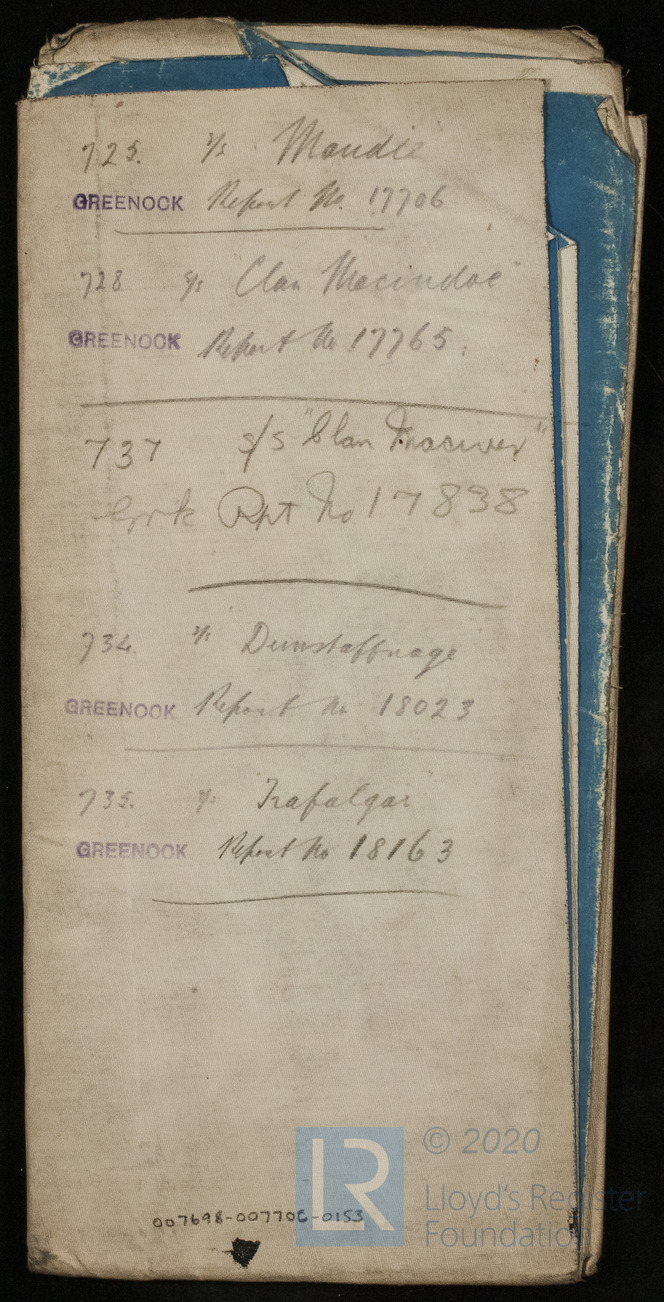 725. s/s "Maudie"
GREENOCK Report No. 17706
728 s/s "Clan Macindoe"
GREENOCK Report No 17765.
737 s/s "Clan Maciver"
Grk Rpt No 17838
734. s/s "Dunstaffnage"
GREENOCK Report No 18023
735. s/s "Trafalgar"
GREENOCK Report No 18163
LR
© 2020
Lloyd's Register
Foundation
007698-007706-0153